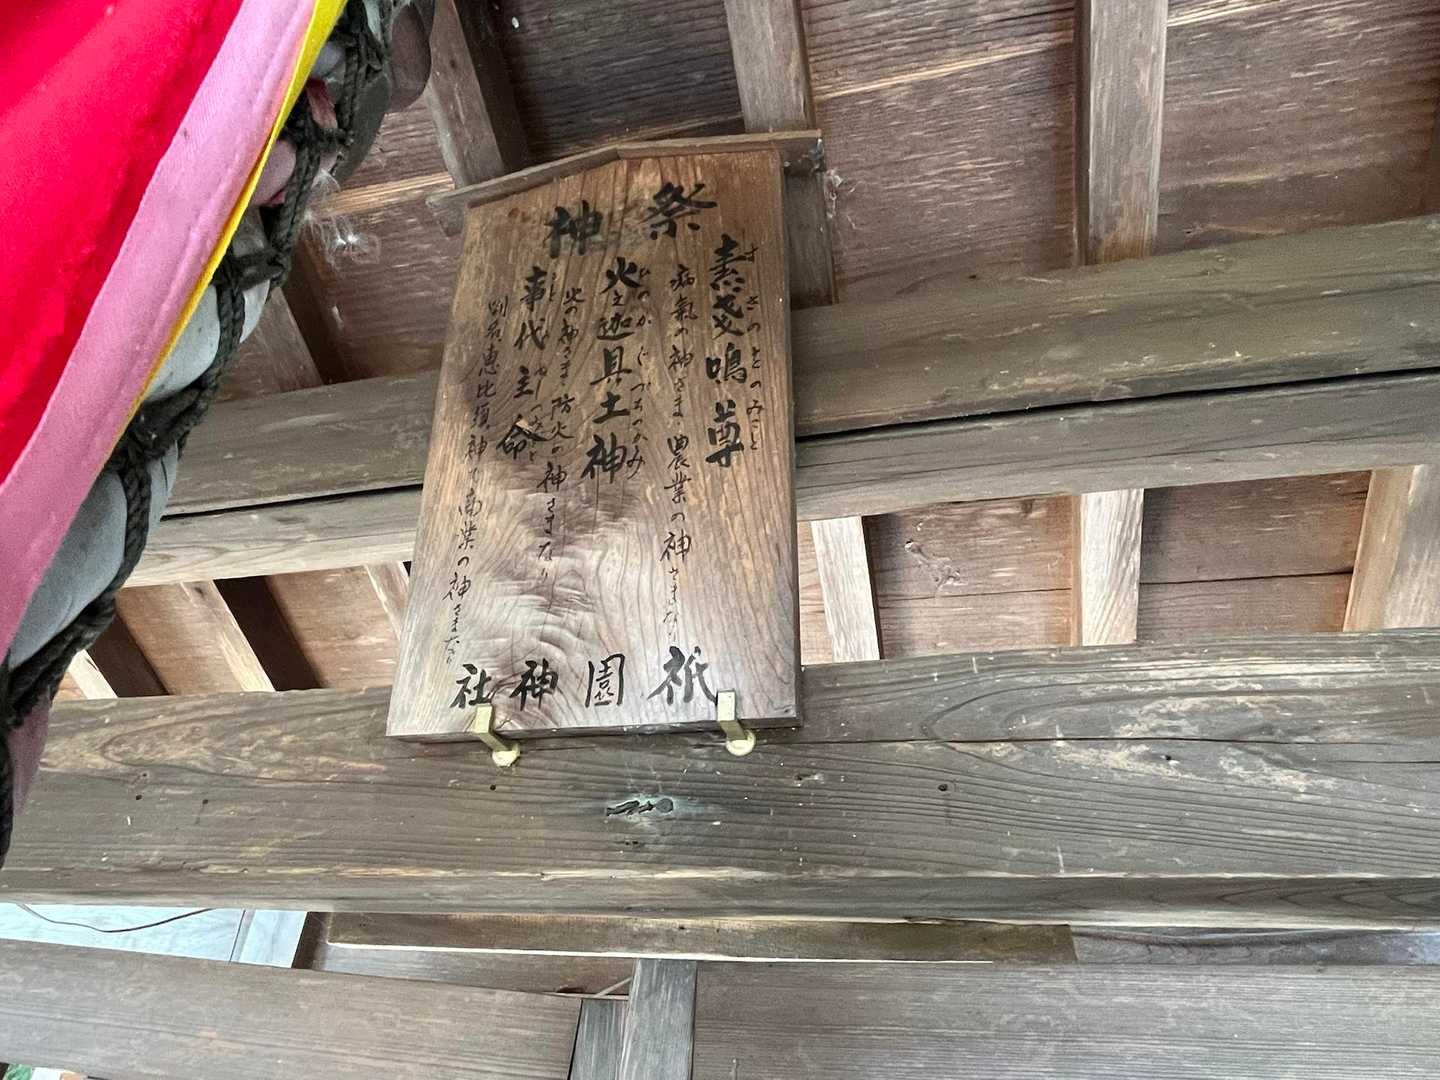 祭神
素戔嗚尊
すさのおのみこと
病氣の神さま・農業の神さまなり
火之迦具土神
ひのかぐつちのかみ
火の神さま・防火の神さまなり
事代主命
ことしろぬしのみこと
別名恵比須神も商業の神さまなり
祇園神社